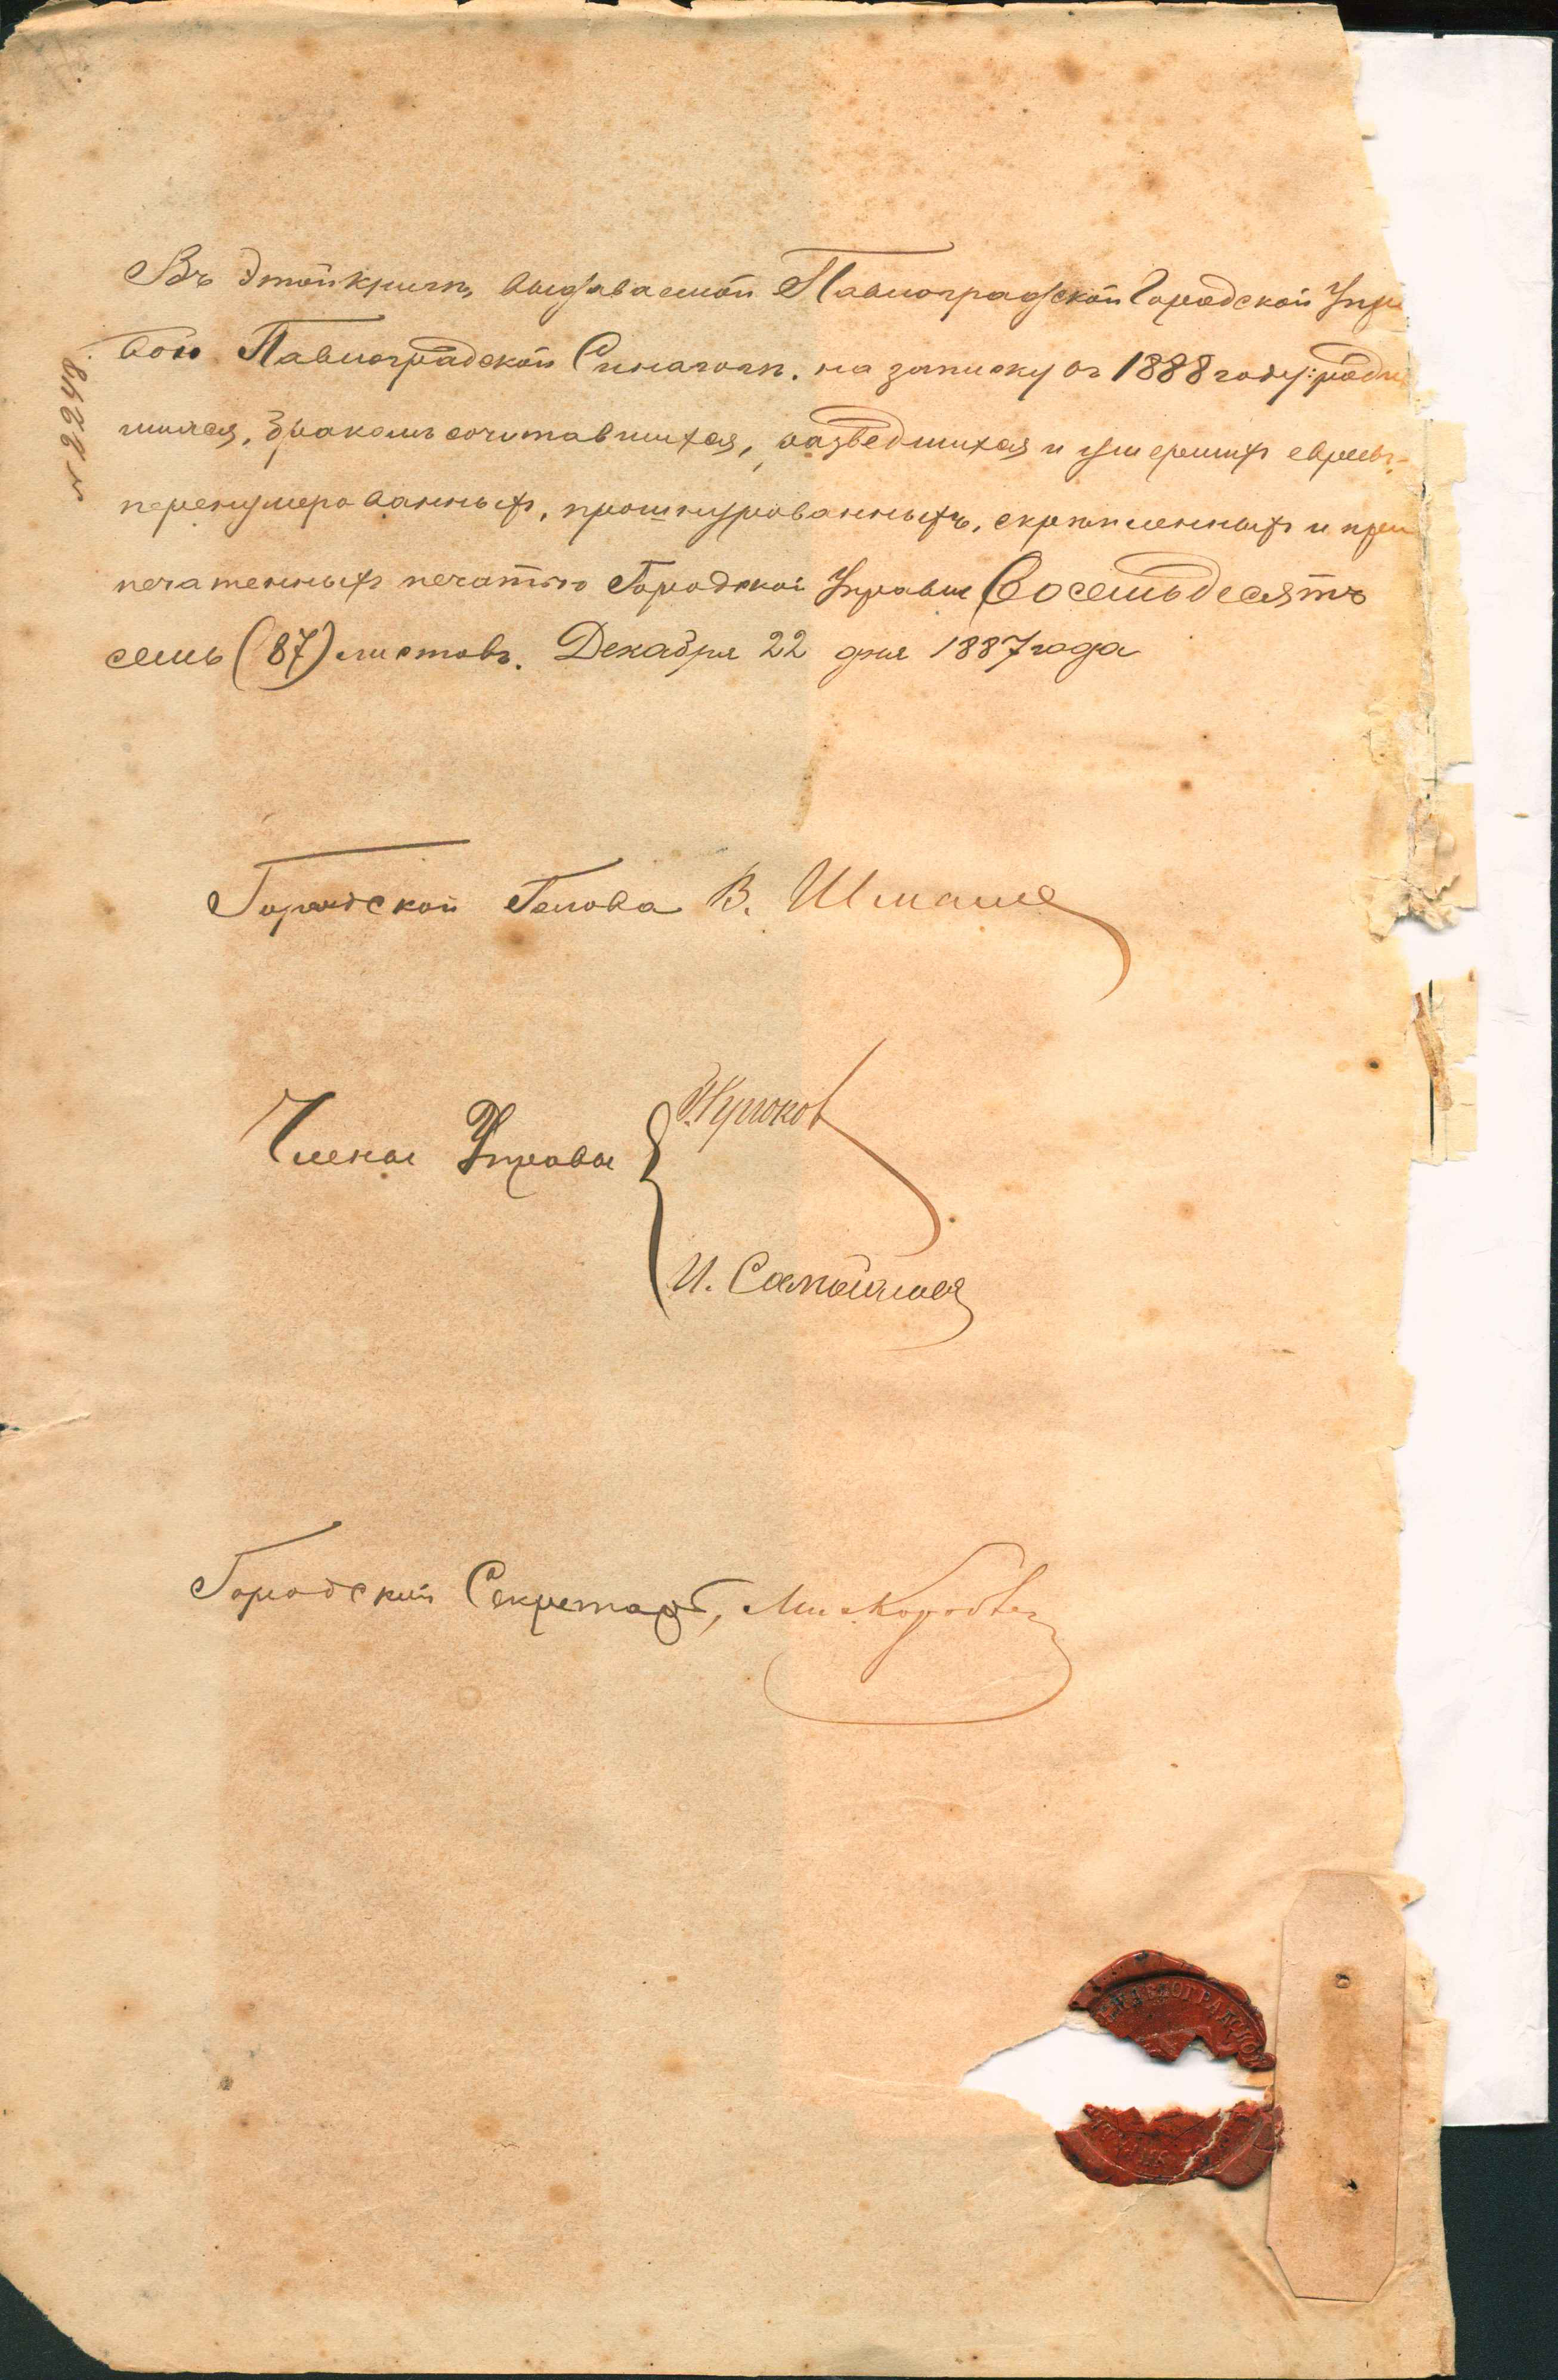 № 2248.
Въ этой книгѣ, выдаваемой Павлоградской Городской Упра
вою Павлоградской Синагогѣ, на записку въ 1888 году: роди
шихся, бракомъ сочитавшихся, разведшихся и умершихъ евреевъ-
перенумерованныхъ, прошнурованныхъ, скрѣпленныхъ и при
печатенныхъ печатью Городской Управы Восемьдесятъ
семь (87) листовъ. Декабря 22 дня 1887 года
Городской Голова В.
Члены Управы
И. Самойлов
Городской Секретарь,
ПАВЛОГРАДСКОЙ